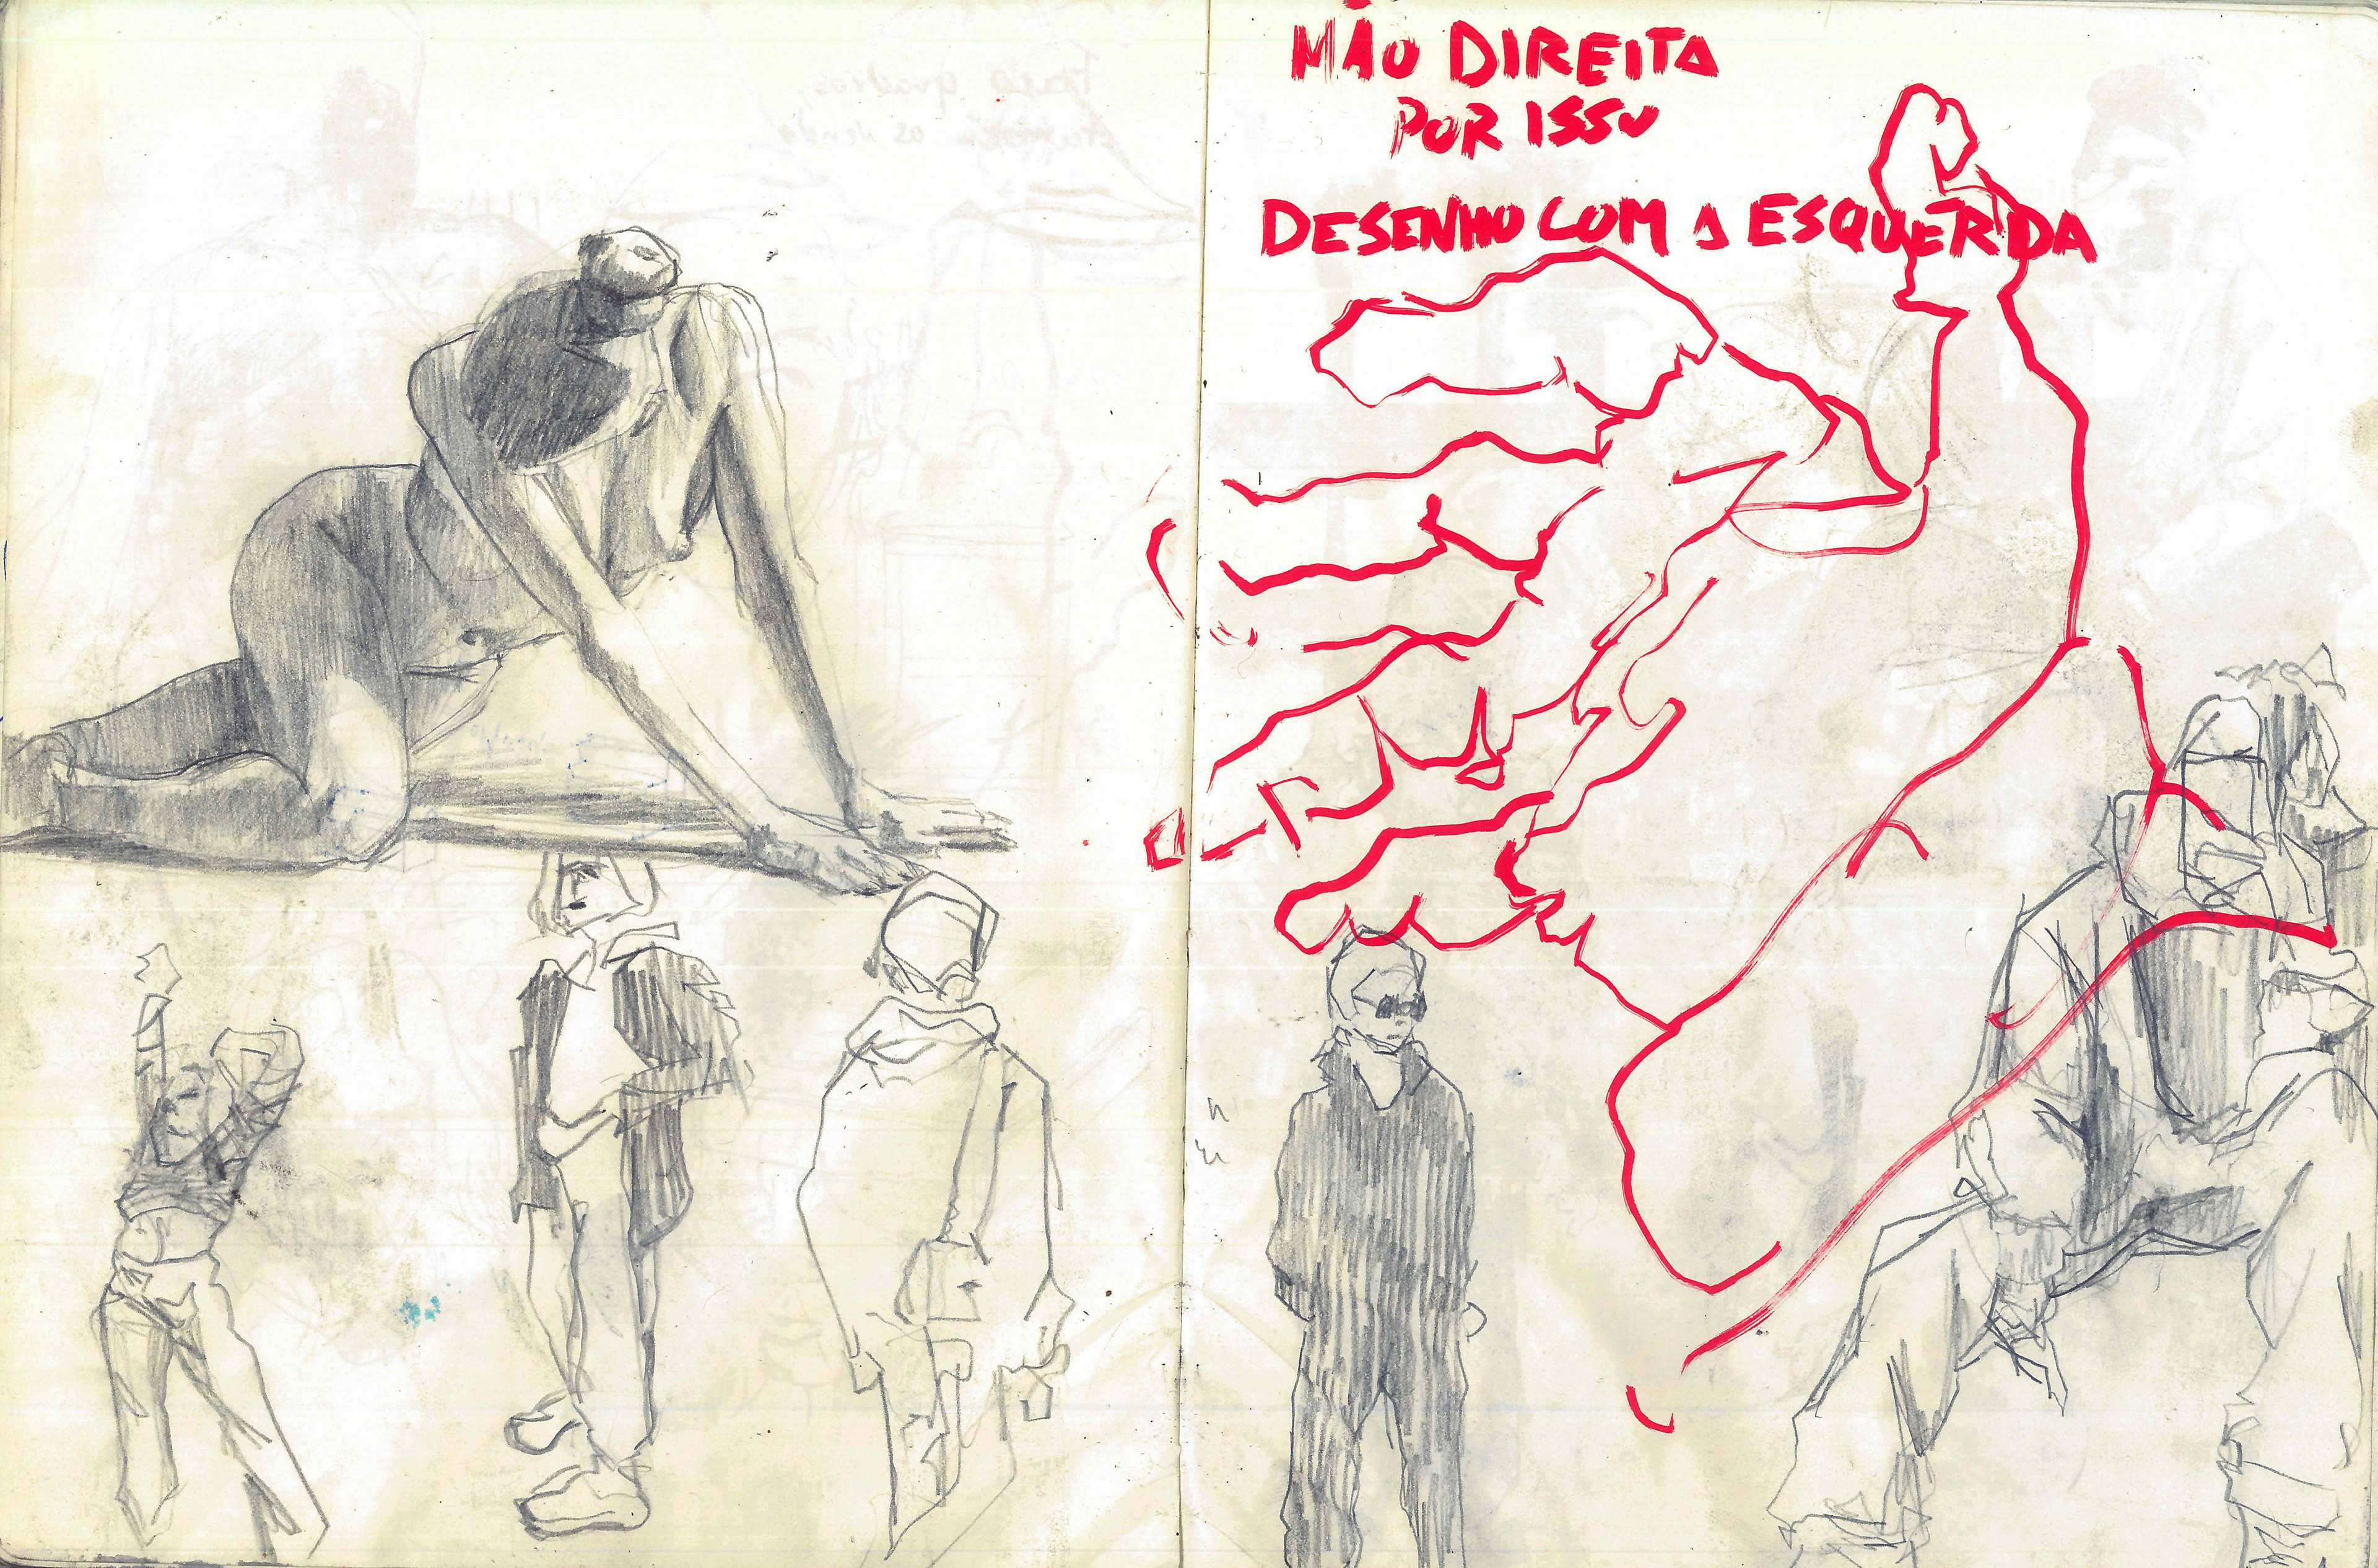 MÃO DIREITA
POR ISSO
DESENHO COM A ESQUERDA